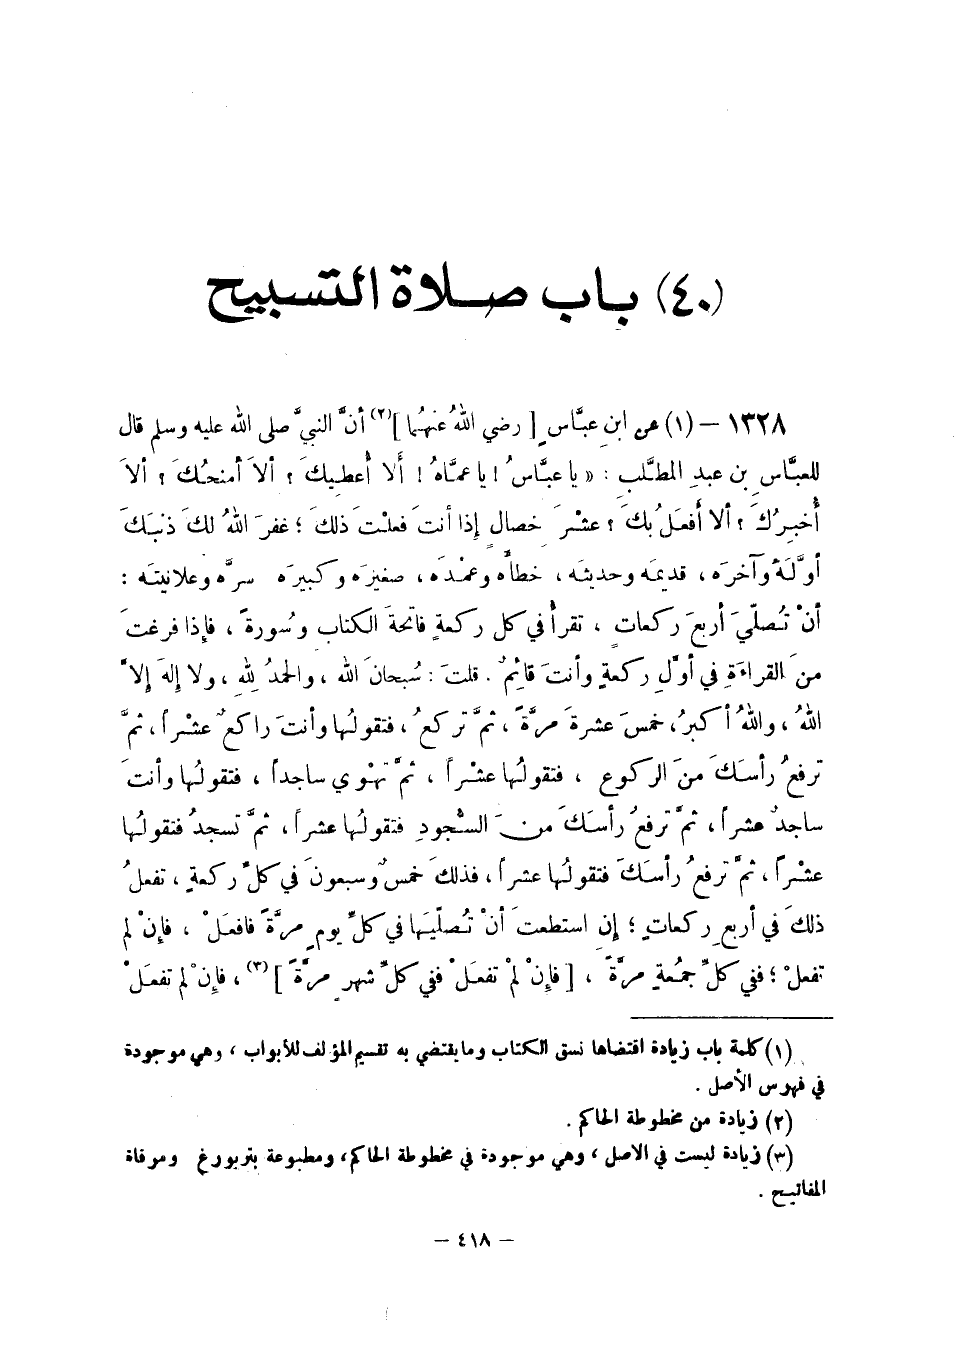 (٤٠) باب صلاة التسبيح
١٣٢٨ – (١) عن ابنِ عبَّاسٍ [ رضي اللهُ عنهُما ](٢) أنَّ النبيَّ صلى الله عليه وسلم قال
للعبَّاسِ بن عبدِ المطَّلبِ : « يا عبَّاسُ ! يا عمَّاهُ ! أَلا أُعطيكَ ؟ ألاَ أمنحُكَ ؟ ألاَ
أُخبرُكَ ؟ ألا أَفعَلُ بكَ ؟ عشْرَ خصالٍ إذا أنتَ فعلْتَ ذلكَ ؛ غفرَ اللهُ لكَ ذنْبَكَ
أوَّلَهُ وآخرَه ، قديمَه وحديثَه ، خطأَه وعمْدَه ، صغيرَه وكبيرَه سرَّه وعلانيتَه :
أنْ تُصلّيَ أربعَ ركعاتٍ ، تقرأُ في كل ركعةٍ فاتحةَ الكتاب وسُورةً ، فإذا فرغتَ
منَ القراءَةِ في أوَّلِ ركعةٍ وأنتَ قائِمٌ . قلتَ : سُبحانَ الله ، والحمدُ للهِ ، ولا إلهَ إلاَّ
اللهُ ، واللهُ أكبرُ ، خمسَ عشرةَ مرَّةً ، ثمَّ تركعُ ، فتقولُها وأنتَ راكعٌ عشْراً ، ثمَّ
ترفعُ رأسَكَ منَ الركوعِ ، فتقولُها عشْراً ، ثمَّ تهْوي ساجداً ، فتقولُها وأنتَ
ساجدٌ عشراً ، ثمَّ ترفعُ رأسَكَ منَ السُّجودِ فتقولُها عشراً ، ثمَّ تسجدُ فتقولُها
عشْراً ، ثمَّ ترفعُ رأسَكَ فتقولُها عشراً ، فذلكَ خمسٌ وسبعونَ في كلِّ ركعةٍ ، تفعلُ
ذلكَ في أربعِ ركعاتٍ ؛ إنِ استطعتَ أنْ تُصلّيَها في كلِّ يومٍ مرَّةً فافعَلْ ، فإنْ لم
تفعلْ ؛ ففي كلِّ جمُعةٍ مرَّةً ، [ فإنْ لمْ تفعَلْ ففي كلِّ شهرٍ مرَّةً ](٣) ، فإنْ لم تفعَلْ
(١) كلمة باب زيادة اقتضاها نسق الكتاب وما يقتضي به تقسيم المؤلف للأبواب ، وهي موجودة
في فهرس الأصل .
(٢) زيادة من مخطوطة الحاكم .
(٣) زيادة ليست في الاصل ، وهي موجودة في مخطوطة الحاكم ، ومطبوعة بتربورغ ومرقاة
المفاتيح .
– ٤١٨ –